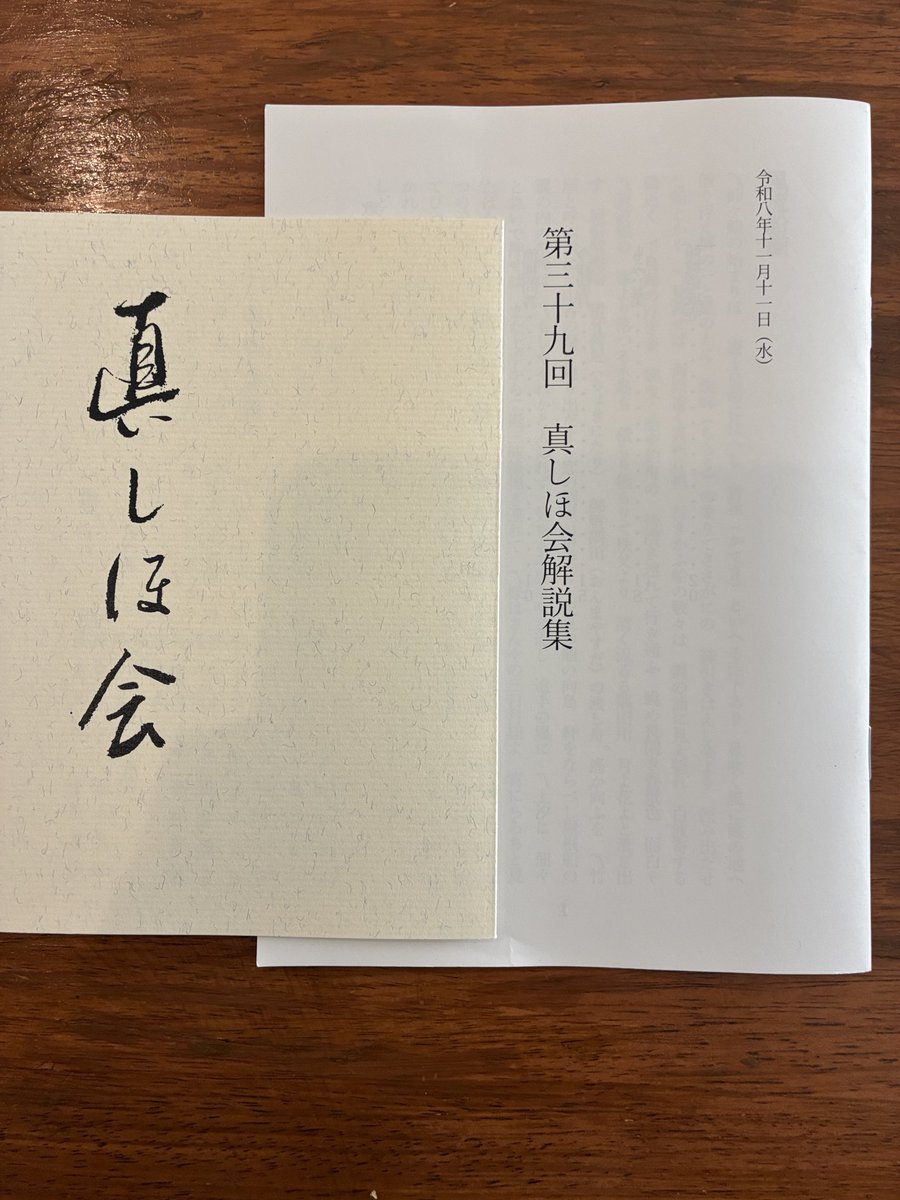 令和八年十一月十一日（水）
第三十九回　真しほ会解説集
真しほ会